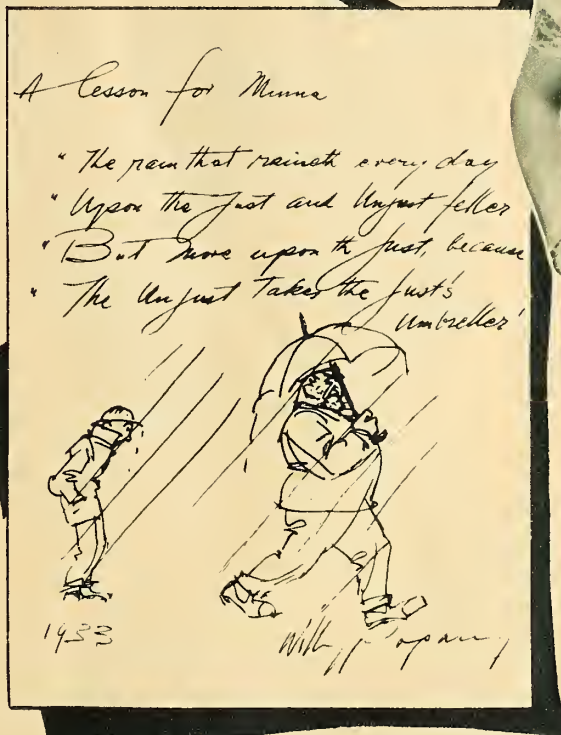 A lesson for Minna
"The rain that raineth every day
"Upon the Just and Unjust feller
"But more upon th Just, because
"The Unjust Takes the Just's
Umbreller"
1933